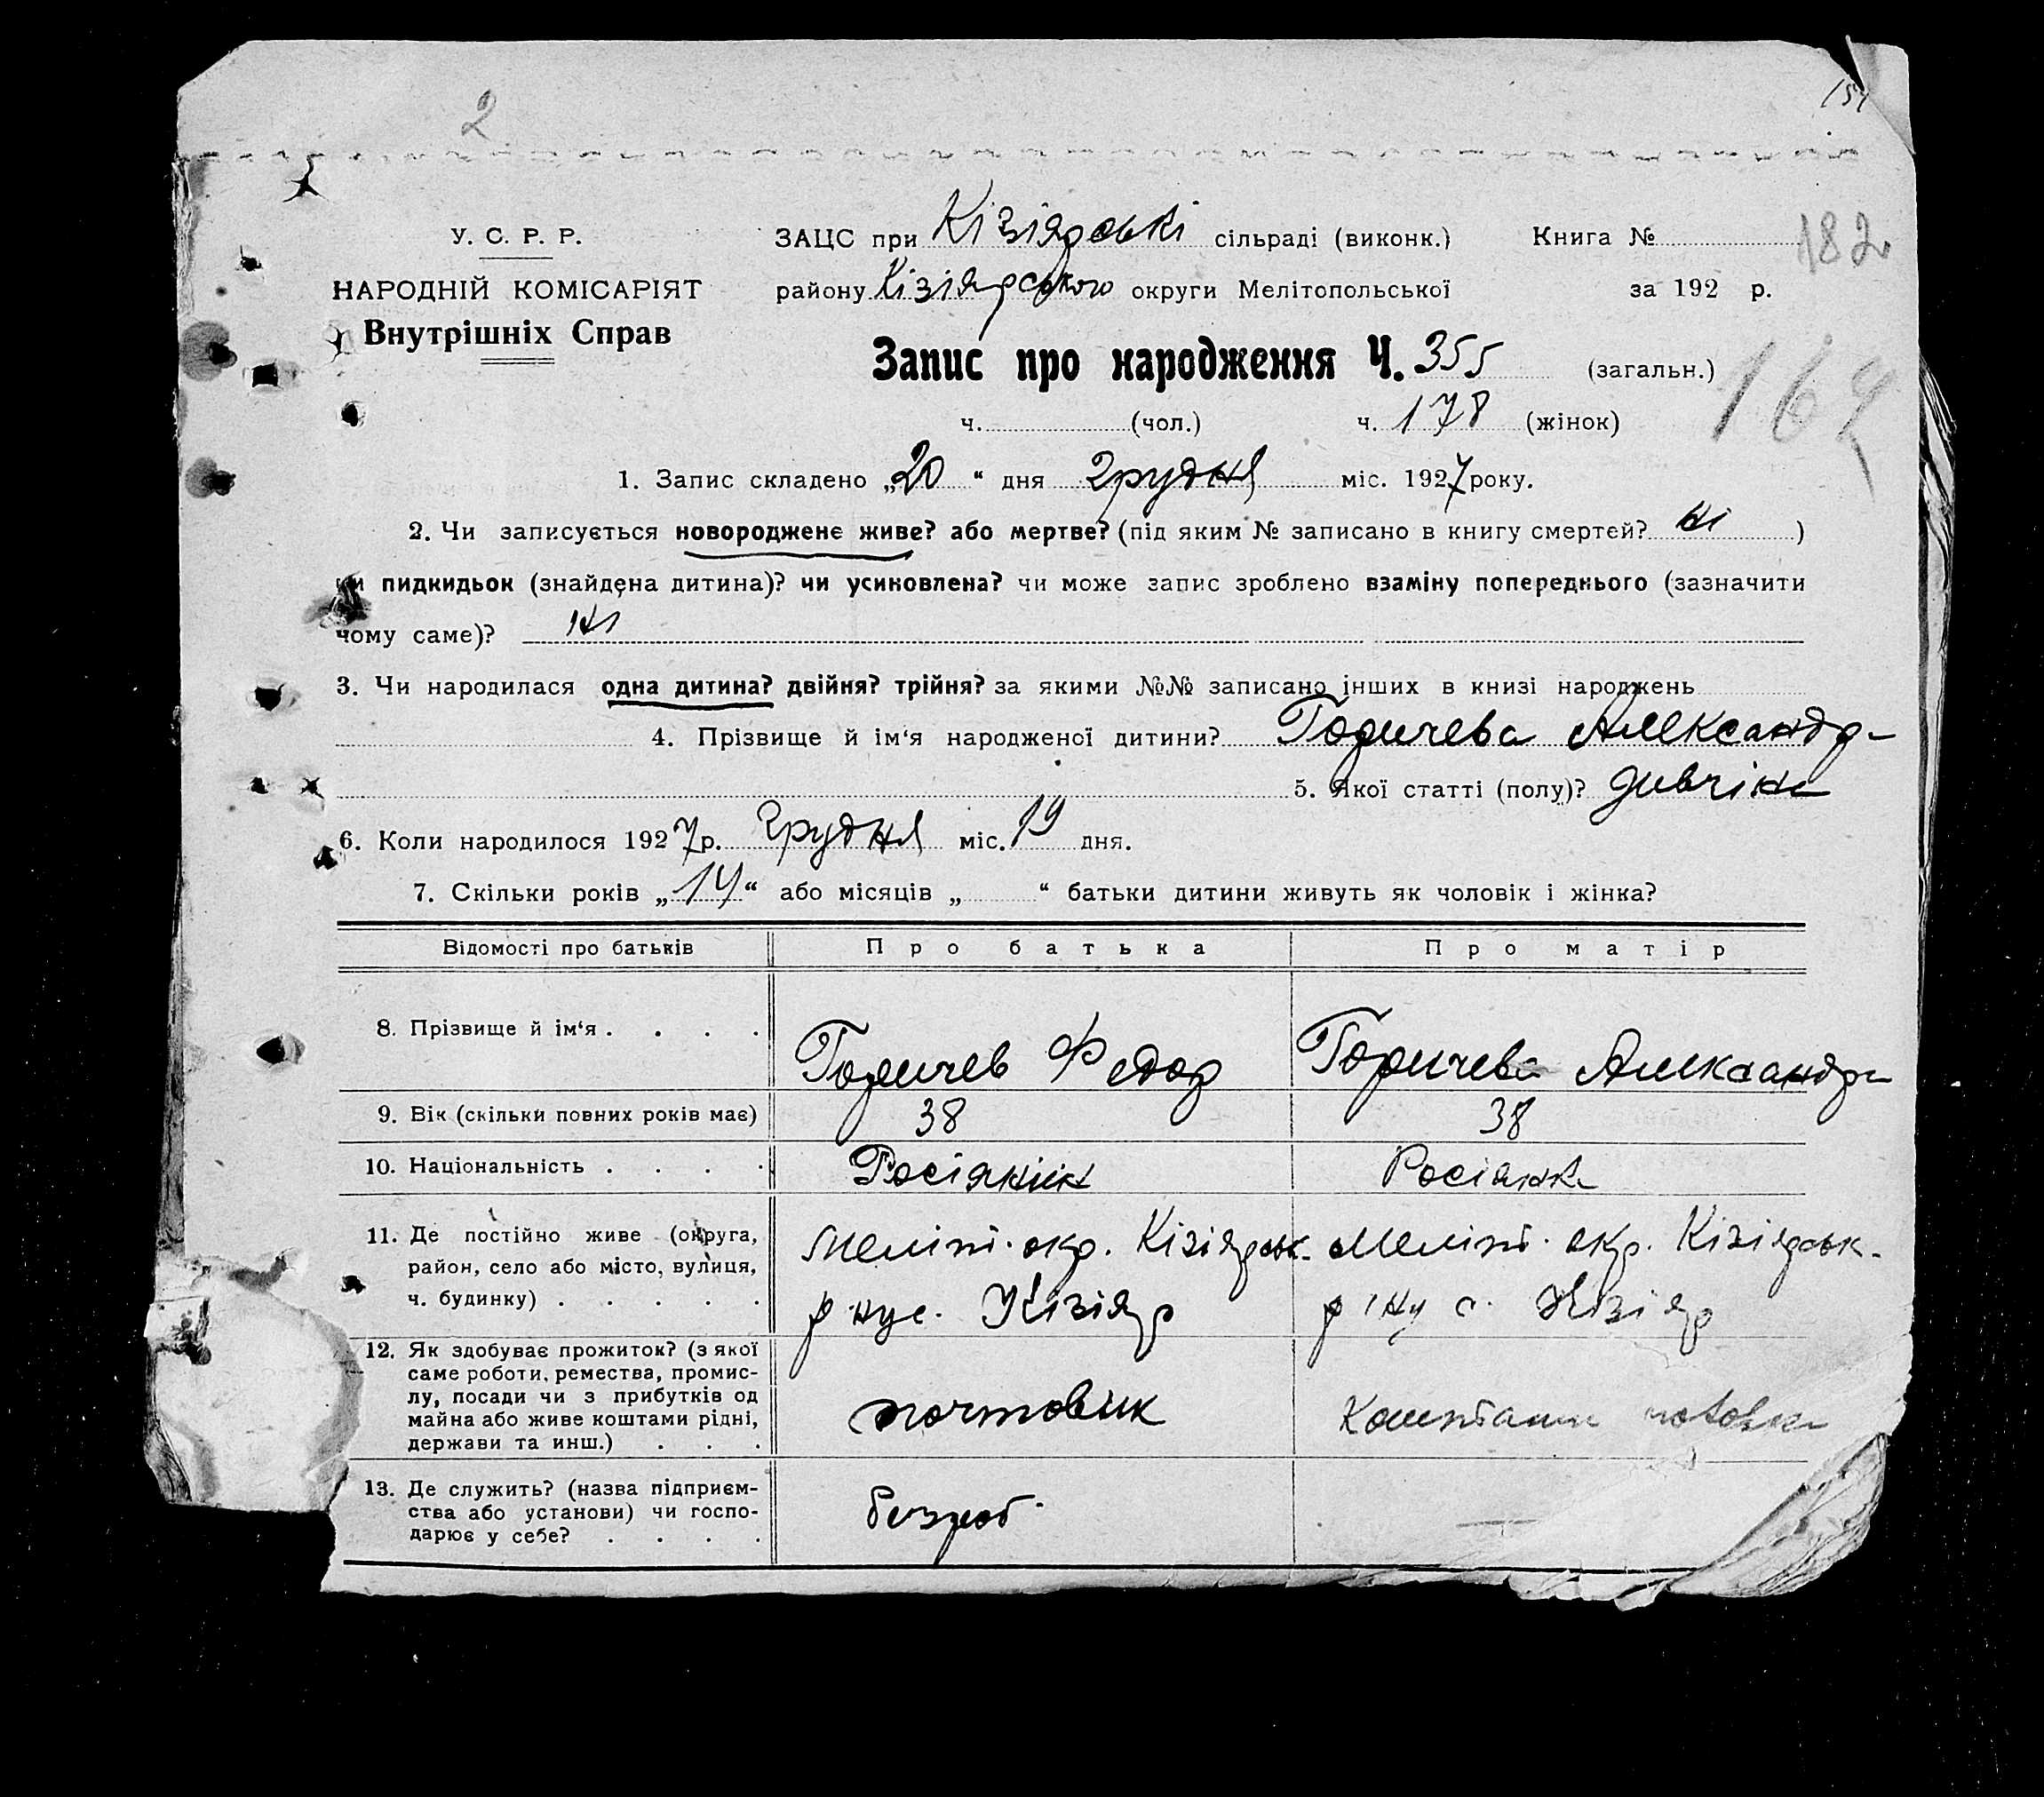 2
154
У. С. Р. Р.
НАРОДНІЙ КОМІСАРІЯТ
Внутрішніх Справ
ЗАЦС при Кізіярські сільраді (виконк.) Книга №
182
району Кізіярського округи Мелітопольської за 192 р.
Запис про народження Ч. 355 (загальн.)
162
ч. (чол.) ч. 178 (жінок)
1. Запис складено „20“ дня грудня міс. 1927 року.
2. Чи записується новороджене живе? або мертве? (під яким № записано в книгу смертей? ні )
чи пидкидьок (знайдена дитина)? чи усиновлена? чи може запис зроблено взаміну попереднього (зазначити
чому саме)? ні
3. Чи народилася одна дитина? двійня? трійня? за якими №№ записано інших в книзі народжень
4. Прізвище й ім‘я народженої дитини? Горичева Александра
5. Якої статті (полу)? дивчіна
6. Коли народилося 1927 р. грудня міс. 19 дня.
7. Скільки років „14“ або місяців „ “ батьки дитини живуть як чоловік і жінка?
Відомості про батьків Про батька Про матір
8. Прізвище й ім‘я . . . . Горичев Федор Горичева Александра
9. Вік (скільки повних років має) 38 38
10. Національність . . . . Росіянин Росіянка
11. Де постійно живе (округа,
район, село або місто, вулиця,
ч. будинку) . . . . .
Меліт. окр. Кізіярськ.
р-ну с. Кізіяр
Меліт. окр. Кізіярськ.
р-ну с. Кізіяр
12. Як здобуває прожиток? (з якої
саме роботи, ремества, промис-
лу, посади чи з прибутків од
майна або живе коштами рідні,
держави та инш.) . . .
почтовик
Коштами
13. Де служить? (назва підприєм-
ства або установи) чи госпо-
дарює у себе? . . . .
безроб.
—